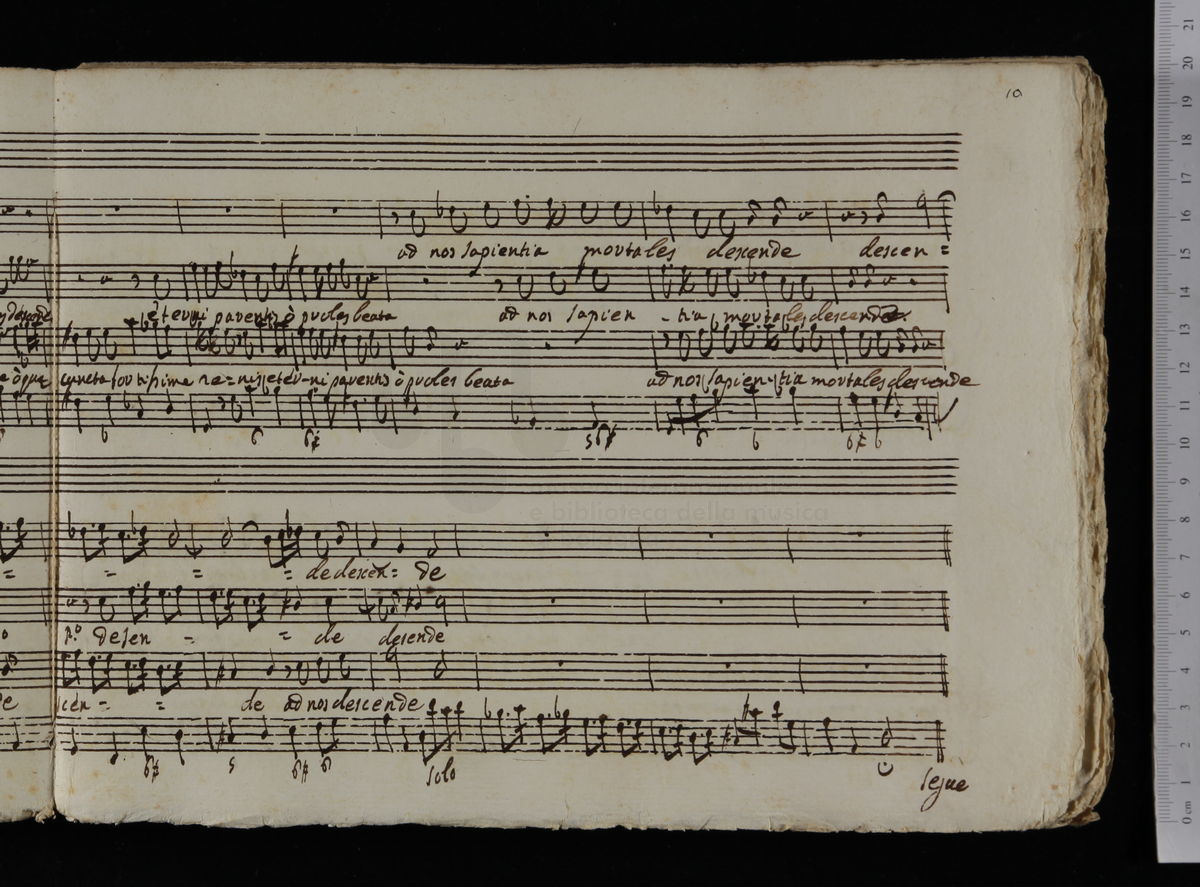 10
ad nos sapientia mortales descende descen =
èterni parentis ò proles beata ad nos sapien - tia mortales descende
cuncta fortissime re = nis eter - ni parentis ò proles beata ad nos sapientia mortales descende
6 6 6 5 6 6 6 6 6
e biblioteca della musica
= = = = de descen = de
p.º desen - = de desende
scen - = de ad nos descende
6 5 6 6 solo
segue
21
20
19
18
17
16
15
14
13
12
11
10
9
8
7
6
5
4
3
2
1
0 cm